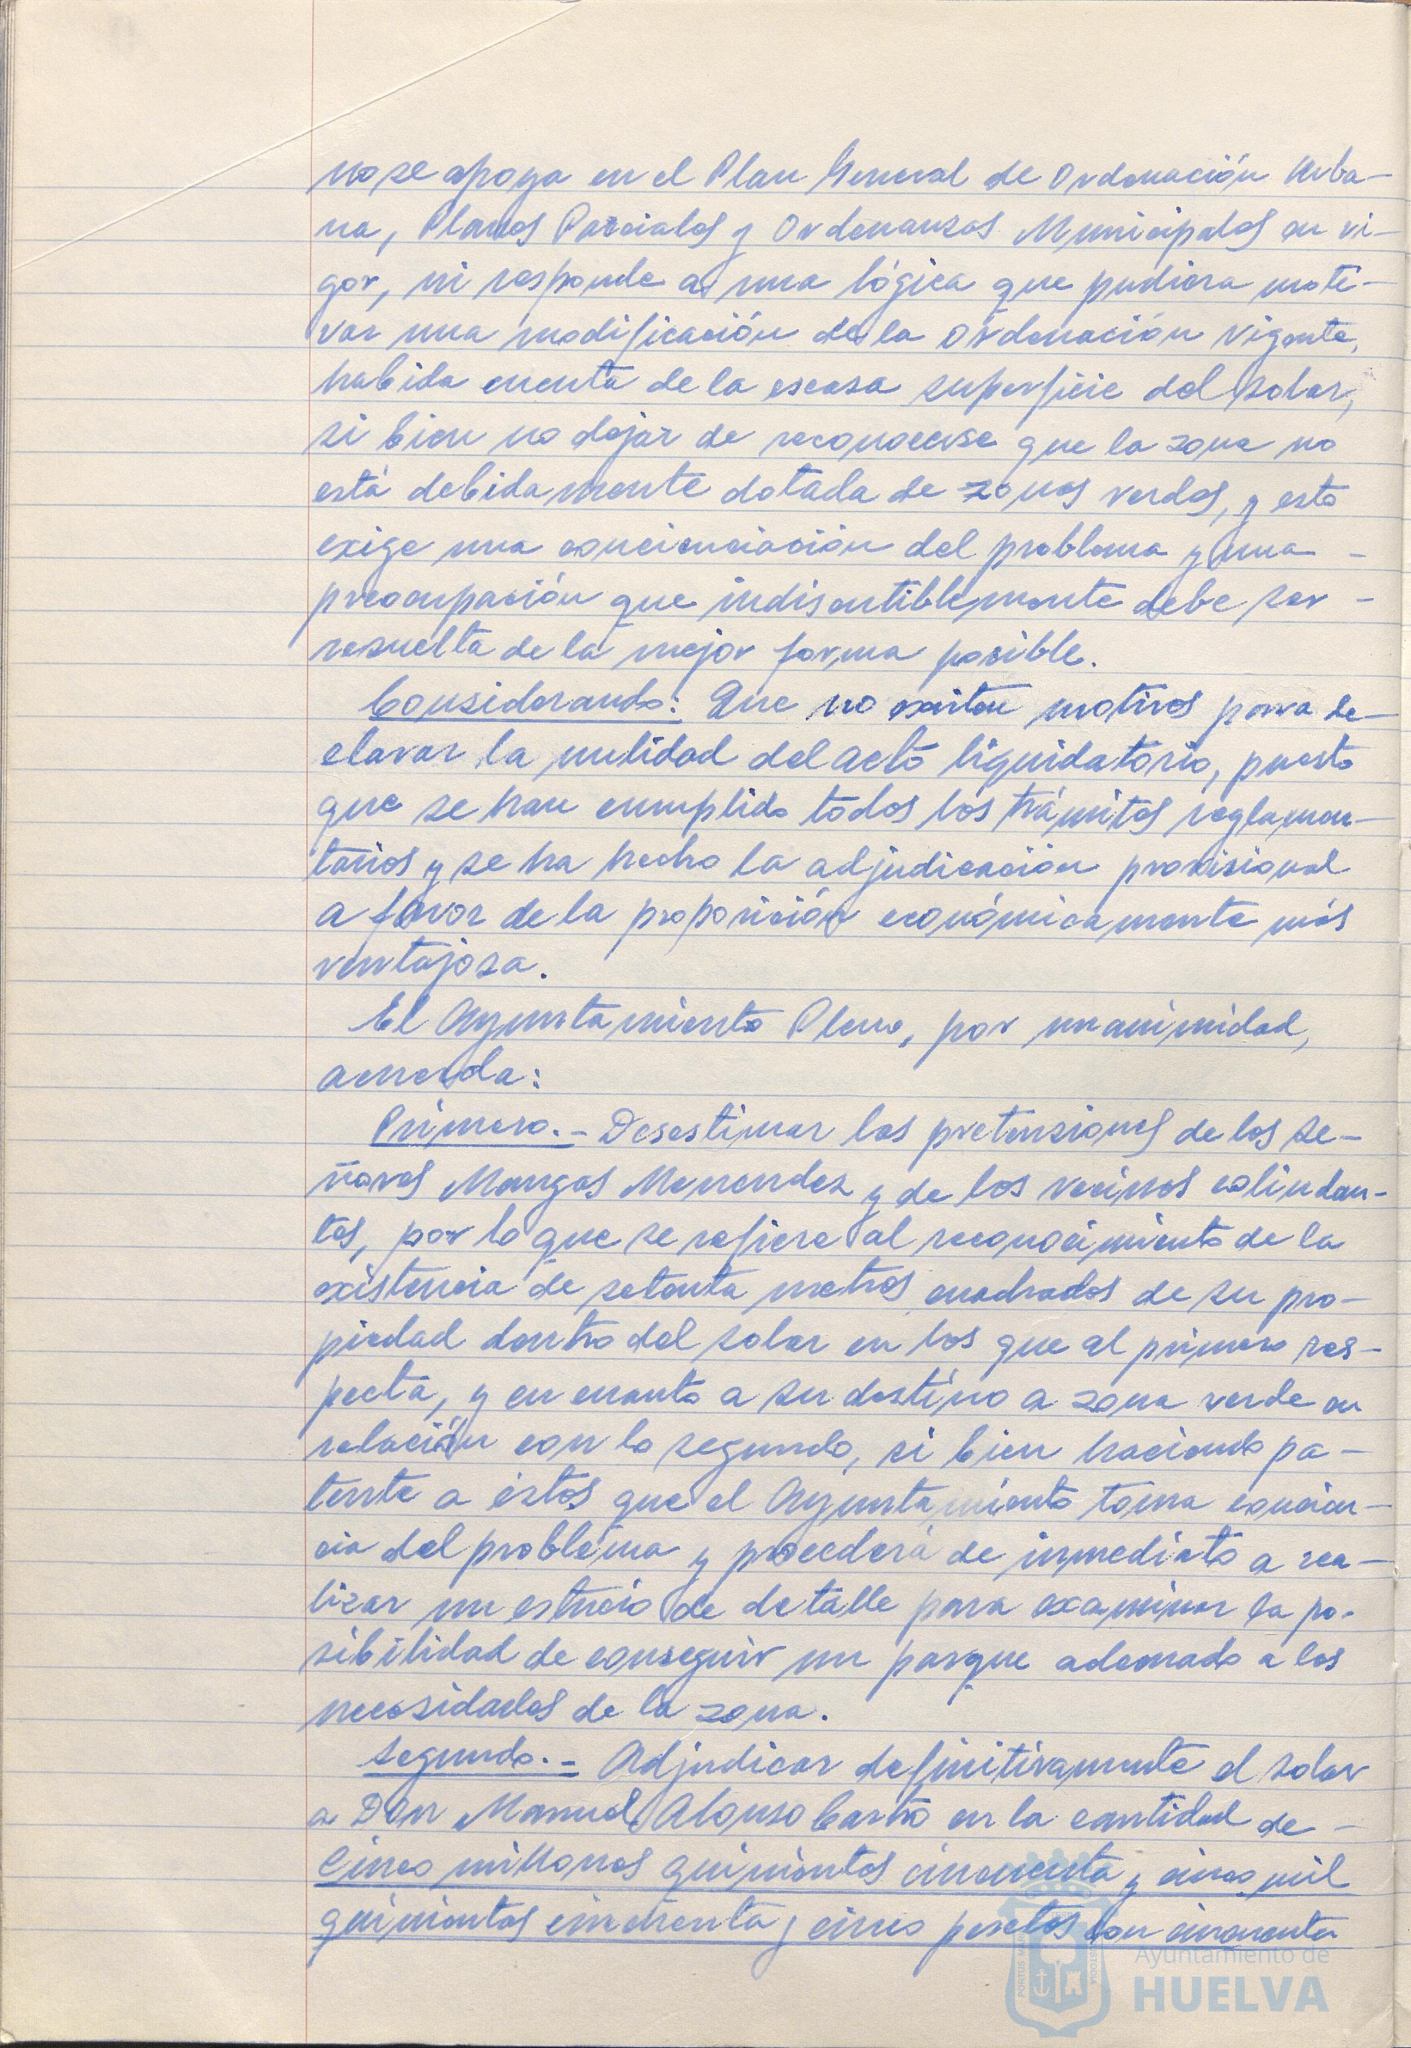 no se apoya en el Plan General de Ordenación Urba-
na, Planos Parciales y Ordenanzas Municipales en vi-
gor, ni responde a una lógica que pudiera moti-
var una modificación de la Ordenación vigente,
habida cuenta de la escasa superficie del solar,
si bien no dejar de reconocerse que la zona no
está debidamente dotada de zonas verdes, y esto
exige una concienciación del problema y una -
preocupación que indiscutiblemente debe ser -
resuelta de la mejor forma posible.
Considerando: Que no existen motivos para de-
clarar la nulidad del acto liquidatorio, puesto
que se han cumplido todos los trámites reglamen-
tarios y se ha hecho la adjudicación provisional
a favor de la proposición económicamente más
ventajosa.
El Ayuntamiento Pleno, por unanimidad,
acuerda:
Primero.- Desestimar las pretensiones de los se-
ñores Mangas Menendez y de los vecinos colindan-
tes, por lo que se refiere al reconocimiento de la
existencia de setenta metros cuadrados de su pro-
piedad dentro del solar en los que al primero res-
pecta, y en cuanto a su destino a zona verde en
relación con lo segundo, si bien haciendo pa-
tente a éstos que el Ayuntamiento toma concien-
cia del problema y procederá de inmediato a rea-
lizar un estudio de detalle para examinar la po-
sibilidad de conseguir un parque adecuado a las
necesidades de la zona.
Segundo.- Adjudicar definitivamente el solar
a Don Manuel Alonso Castro en la cantidad de -
Cinco millones quinientos cincuenta y cinco mil
quinientas cincuenta y cinco pesetas con cincuenta
Ayuntamiento de
HUELVA